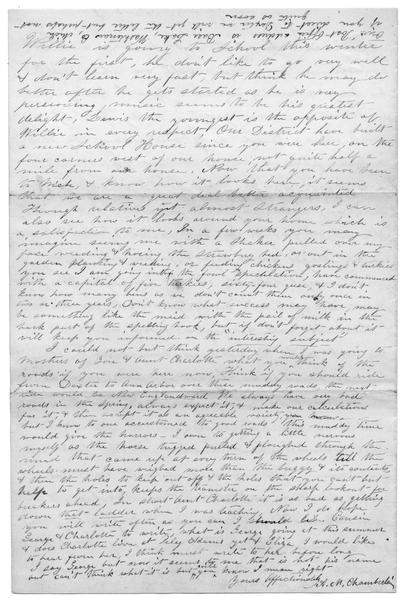 Willie is going to School this winter
for the first, he don't like to go very well
& don't learn very fast, but think he may do
better after he gets started as he is very
persevering, music seems to be his greatest
delight, Lewis the youngest is the opposite of
Willie in every respect. Our District have built
a new School House since you were here, on the
four corners west of our house, not quite half a
mile from our house. Now that you have been
to Mich, & know how it looks here it seems
that we are a great deal better acquainted
Through relatives not almost strangers, can
also see how it looks around your home which is
a satisfaction to me, In a few weeks you may
imagine seeing me with a Shaker pulled over my
face weeding & hoeing the Strawberry bed, or out in the
garden planting & weeding or tending chickens goslings & turkies
you see I am going into the fowl Speculation, have commenced
with a capital of five turkies, sixty four geese, & I don't
know how many hens as we don't count them only once in
two or three years, Don't know what success me have may
be something like the maid with the pail of milk in the
back part of the spelling book, but if don't forget about it
will keep you informed on the interesting subject
I could not but think yesterday when I was going to
of Jon & Aunt Charlotte what you would think of the
roads if you were here now, Think if you should ride
from Dexter to Ann Arbor over these muddy roads, the next
ride would be New Englandward We always have over bad
roads in the Spring, always expect it, & make our calculations
for it, & then accept it as an agreeable variety
but I know to one accustomed to good roads this muddy time
would give the horrors - I own to getting a little nervous
myself as the poor horses tugged pulled & ploughed through the
mud that came up at every turn of the wheels till the
wheels must have weighed more than the buggy & its contents,
& then the holes to keep out of & the holes that you can't but
help to get into, keeps the teamster on a sharp lookout for
breakers ahead, In short Aunt Charlotte it is as bad as getting
down that ladder when I was teaching, Now I do hope
you will write often as you can I should like Cousin
George & Charlotte to write, what is George going at this summer
& does Charlotte live at Riley Adams yet? Eliza I would like
to hear from her, I think must write to her before long
I say George but now it seems to me that is not his name
but can't think what it is but you know who I mean right
Yours Affectionately
A. M. Chamberlin